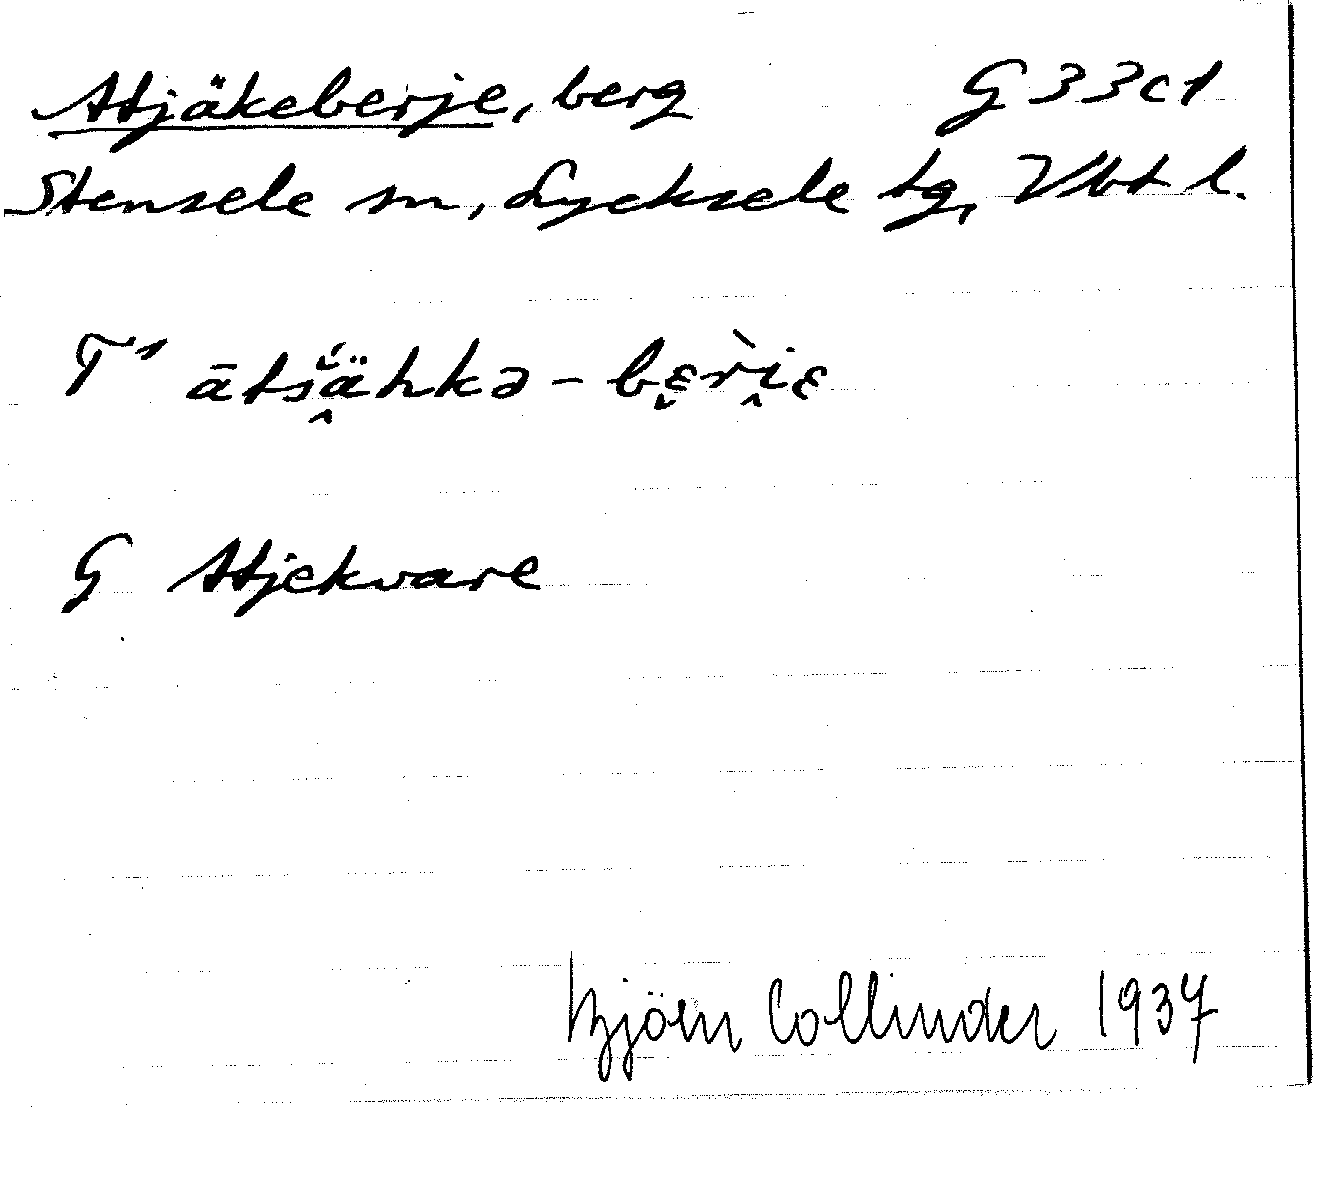 Atjäkeberje, berg G 33 c 1
Stensele sn, Lycksele tg, Vbt l.
T¹ ātš́ä̭hkə - bɛ̮r̀i̭ɛ
G Atjekvare
Björn Collinder 1937